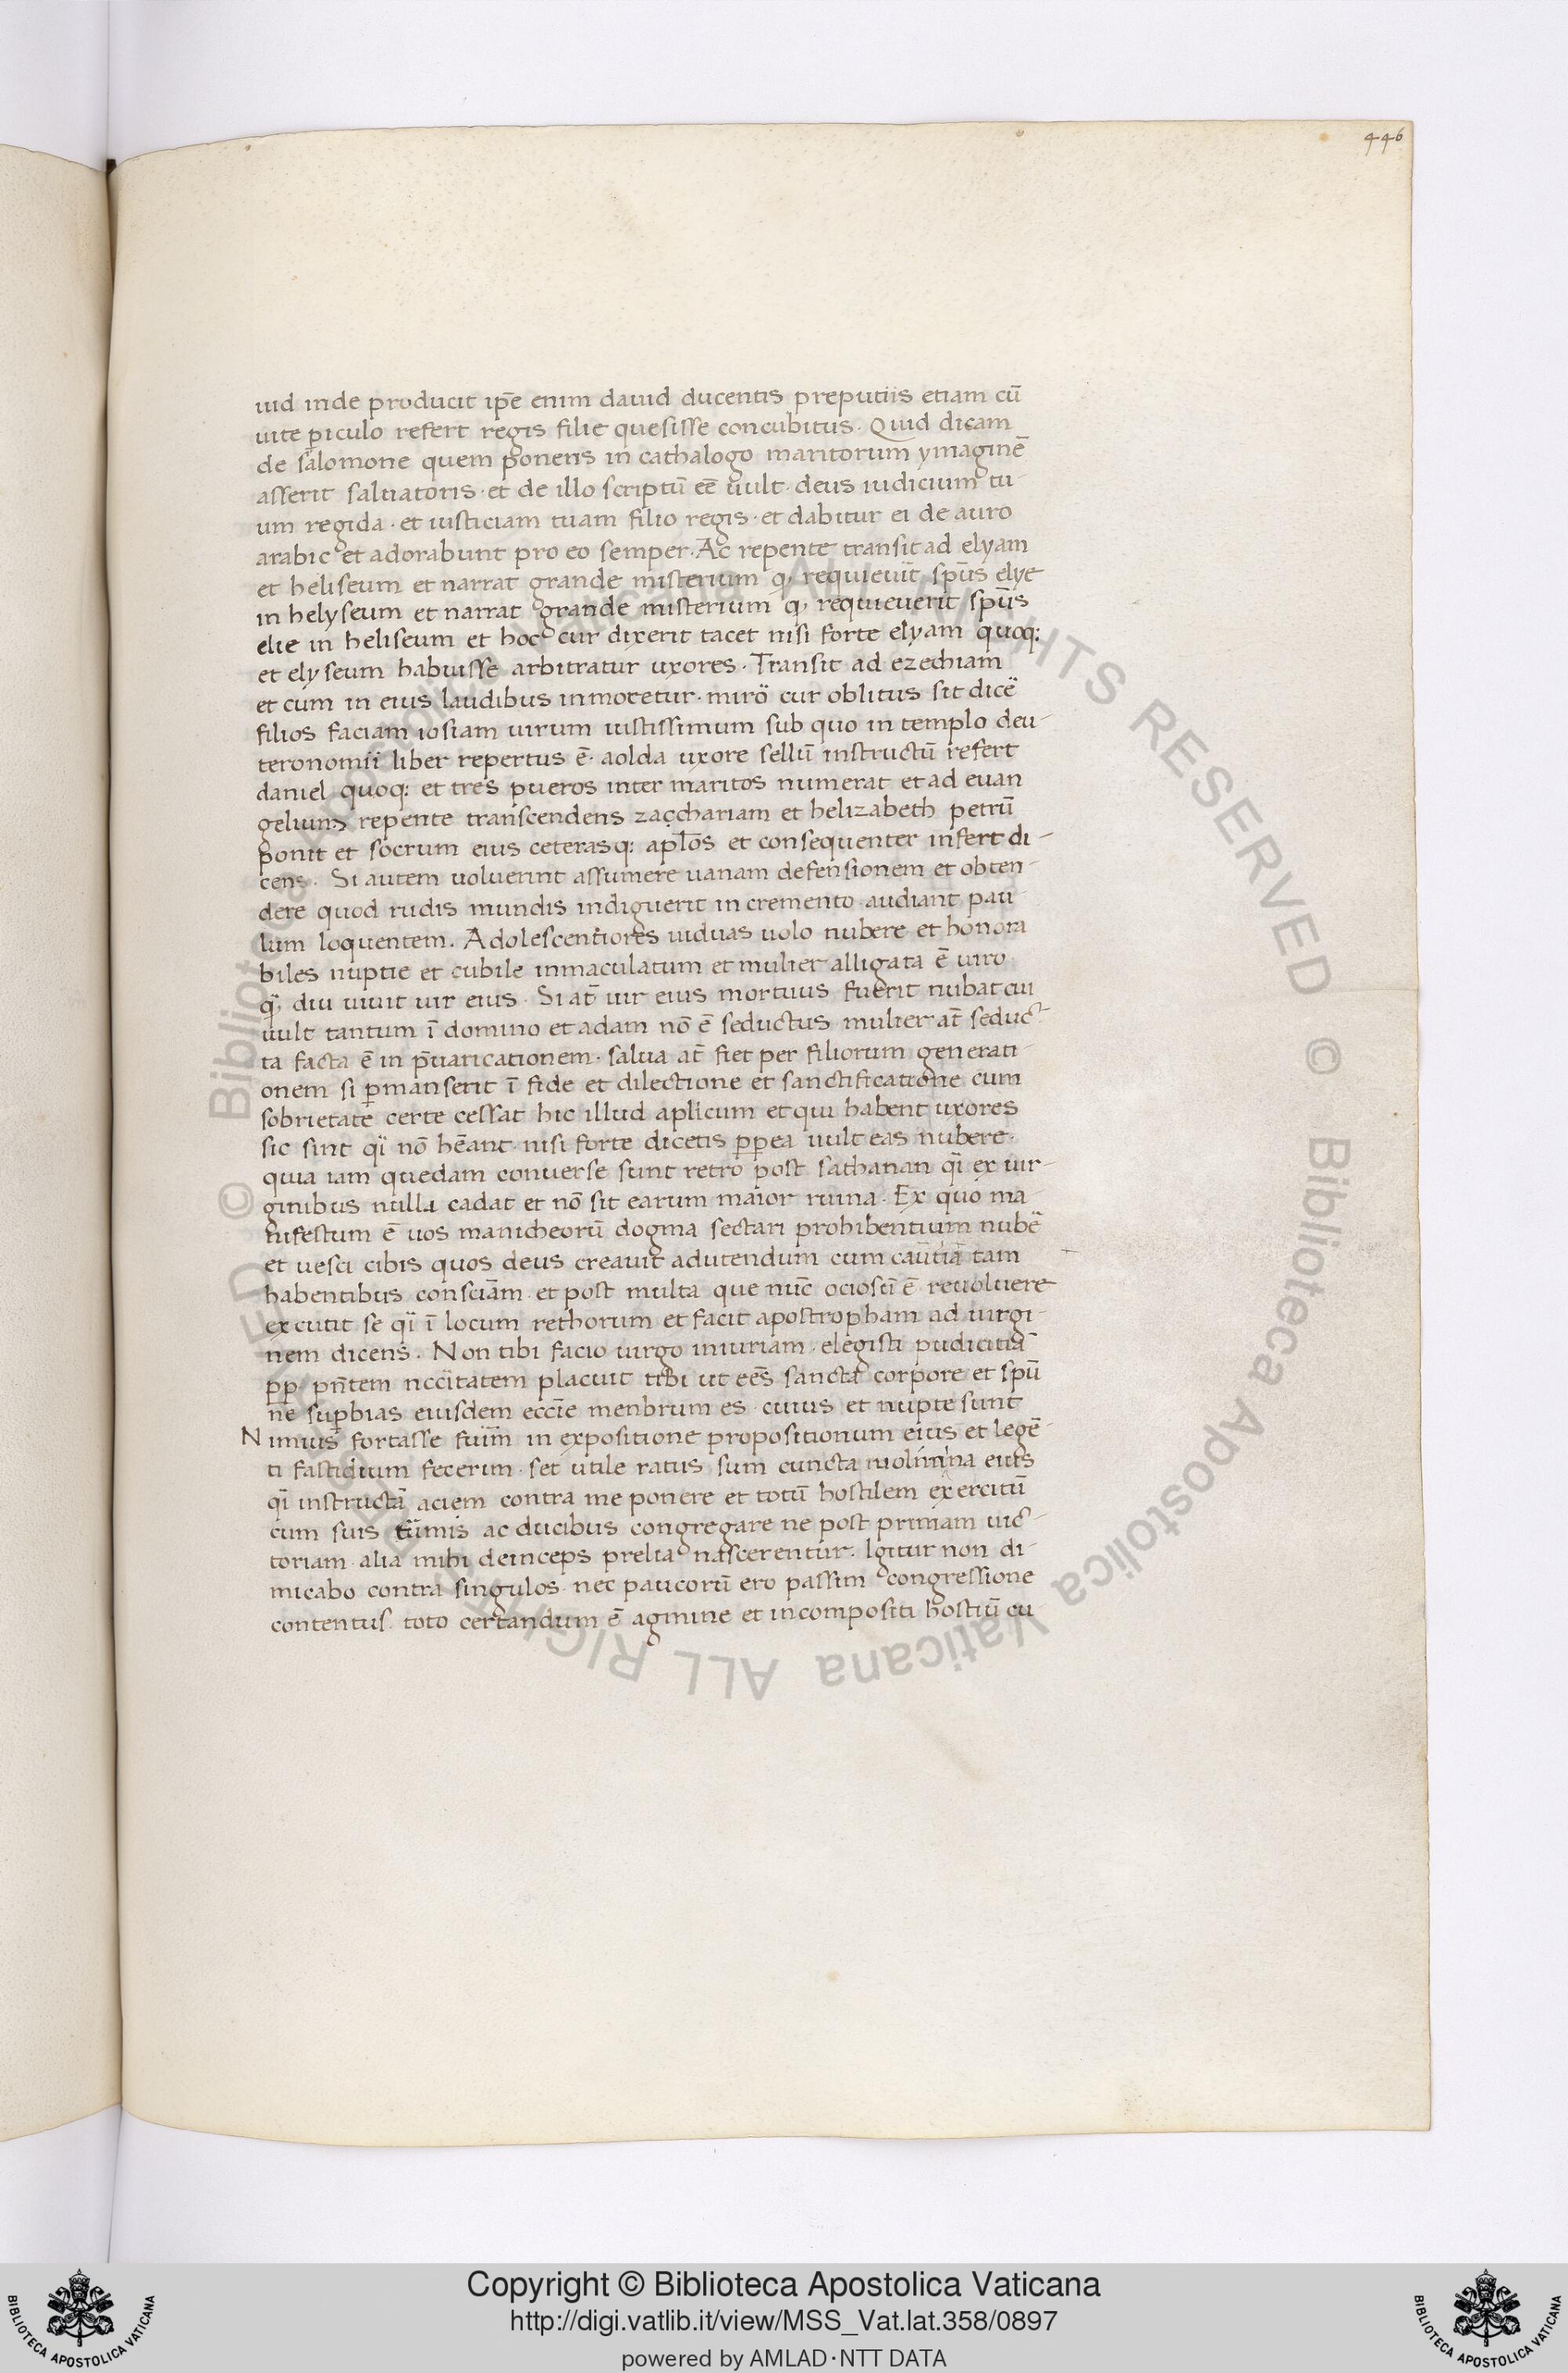 446
uid inde producit ip̄e enim dauid ducentis preputiis etiam cū
uite ꝑiculo refert regis filie quesisse concubitus · Quid dicam
de salomone quem ponens in cathalogo maritorum ymaginē
asserit saluatoris · et de illo scriptū eē uult · deus iudicium tu-
um regi da · et iusticiam tuam filio regis · et dabitur ei de auro
arabic et adorabunt pro eo semper · Ac repente transit ad elyam
et heliseum et narrat grande misterium ꝙ requieuit sp̄us elye
in helyseum et narrat grande misterium ꝙ requieuerit sp̄us
elie in heliseum et hoc cur dixerit tacet nisi forte elyam quoq:
et elyseum habuisse arbitratur uxores · Transit ad ezechiam
et cum in eius laudibus inmoretur · miror̄ cur oblitus sit dicē
filios faciam iosiam uirum iustissimum sub quo in templo deu-
teronomii liber repertus ē · a olda uxore sellū instructū refert
daniel quoq: et tres pueros inter maritos numerat et ad euan
gelium repente transcendens zacchariam et helizabeth petrū
ponit et socrum eius ceterasq: apl̄os et consequenter infert di-
cens · Si autem uoluerint assumere uanam defensionem et obten-
dere quod rudis mundis indiguerit incremento · audiant pau-
lum loquentem . Adolescentiores uiduas uolo nubere et honora
biles nuptie et cubile inmaculatum et mulier alligata ē uiro
qͣdiu uiuit uir eius · Si at̄ uir eius mortuus fuerit nubat cui
uult tantum ī domino et adam nō ē seductus mulier at̄ seduc-
ta facta ē in p̄uaricationem · salua at̄ fiet per filiorum generati-
onem si ꝑmanserit ī fide et dilectione et sanctificatione cum
sobrietate certe cessat hic illud aplicum et qui habent uxores
sic sint qͣi nō hēant · nisi forte dicetis ꝓꝑea uult eas nubere ·
quia iam quedam conuerse sunt retro post sathanan qͣi ex uir-
ginibus nulla cadat et nō sit earum maior ruina · Ex quo ma-
nifestum ē uos manicheorū dogma sectari prohibentium nubē
et uesci cibis quos deus creauit ad utendum cum cautiā tam
habentibus consciam̄ · et post multa que nūc ociosū ē reuoluere
excutit se qͣi ī locum rethorum et facit apostropham ad uirgi-
nem dicens . Non tibi facio uirgo iniuriam · elegisti pudicitiā
ꝓꝑ pn̄tem nccitatem placuit tibi ut eēs sancta corpore et sp̄u
ne suꝑbias eiusdem eccīe menbrum es · cuius et nupte sunt
Nimius fortasse fuim̄ in expositione propositionum eius et legē-
ti fastidium fecerim · set utile ratus sum cuncta molimina eius
qͣi instructā aciem contra me ponere et totū hostilem exercitū
cum suis tūmis ac ducibus congregare ne post primam uic-
toriam · alia mihi deinceps prelia nascerentur . Igitur non di-
micabo contra singulos nec paucorū ero passim congressione
contentus · toto certandum ē agmine et incompositi hostiū cu
Copyright © Biblioteca Apostolica Vaticana
http://digi.vatlib.it/view/MSS_Vat.lat.358/0897
powered by AMLAD·NTT DATA